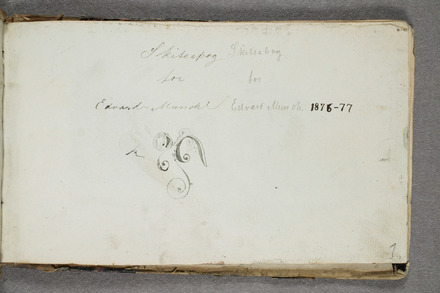 Skitsepog Skitsebog
for for
Edvard Munch Edvard Munch 1876-77
1